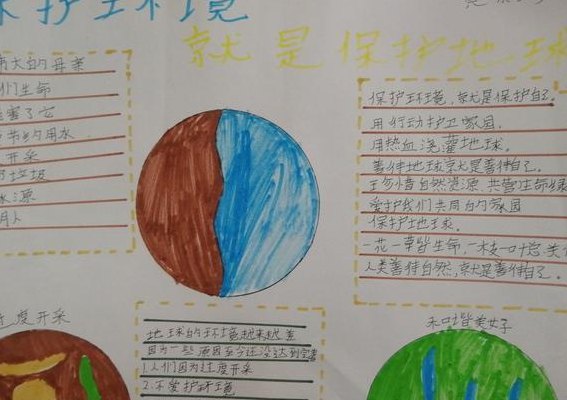 保护环境
就是保护地球
伟大的母亲
们生命
害了它
节约用水
开采
垃圾
水源
保护环境，就是保护自己。
用行动护卫家园，
用热血浇灌地球。
善待地球就是善待自己。
珍惜自然资源 共营生命绿
爱护我们共同的家园
保护地球。
一花一草皆生命，一枝一叶总关
人类善待自然，就是善待自己。
过度开采
地球的环境越来越差
因为一些原因至今还没达到完善
1.人们因为过度开采
2.不爱护环境
和谐美好